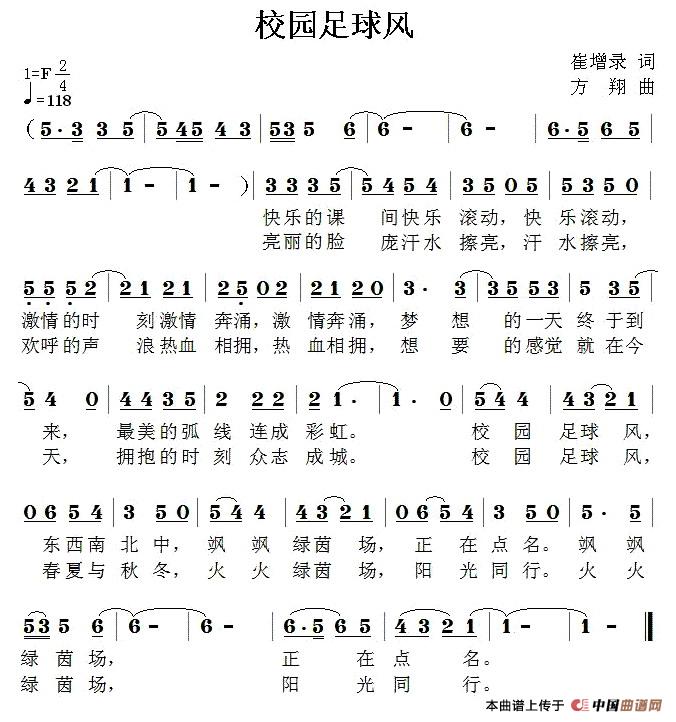 校园足球风
1=F 2/4
♩=118
崔增录 词
方 翔 曲
( 5·3 3 3 5 | 5 45 4 3 | 53 5 6 | 6 - | 6 - | 6·5 6 5 |
4 3 2 1 | 1 - | 1 - ) | 3 3 3 5 | 5 4 5 4 | 3 5 0 5 | 5 3 5 0 |
快乐的课 间快乐 滚动，快 乐滚动，
亮丽的脸 庞汗水 擦亮，汗 水擦亮，
5 5 5 2 | 2 1 2 1 | 2 5 0 2 | 2 1 2 0 | 3· 3 | 3 5 5 3 | 5 3 5 |
激情的时 刻激情 奔涌，激 情奔涌，梦 想 的一天 终于到
欢呼的声 浪热血 相拥，热 血相拥，想 要 的感觉 就在今
5 4 0 | 4 4 3 5 | 2 2 2 | 2 1· | 1· 0 | 5 4 4 | 4 3 2 1 |
来， 最美的弧 线 连成 彩虹。 校 园 足球 风，
天， 拥抱的时 刻 众志 成城。 校 园 足球 风，
0 6 5 4 | 3 5 0 | 5 4 4 | 4 3 2 1 | 6 5 4 | 3 5 0 | 5· 5 |
东西南 北中， 飒 飒 绿茵 场， 正 在点 名。 飒 飒
春夏与 秋冬， 火 火 绿茵 场， 阳 光同 行。 火 火
53 5 6 | 6 - | 6 - | 6·5 6 5 | 4 3 2 1 | 1 - | 1 - ‖
绿 茵 场， 正 在 点 名。
绿 茵 场， 阳 光 同 行。
本曲谱上传于 中国曲谱网